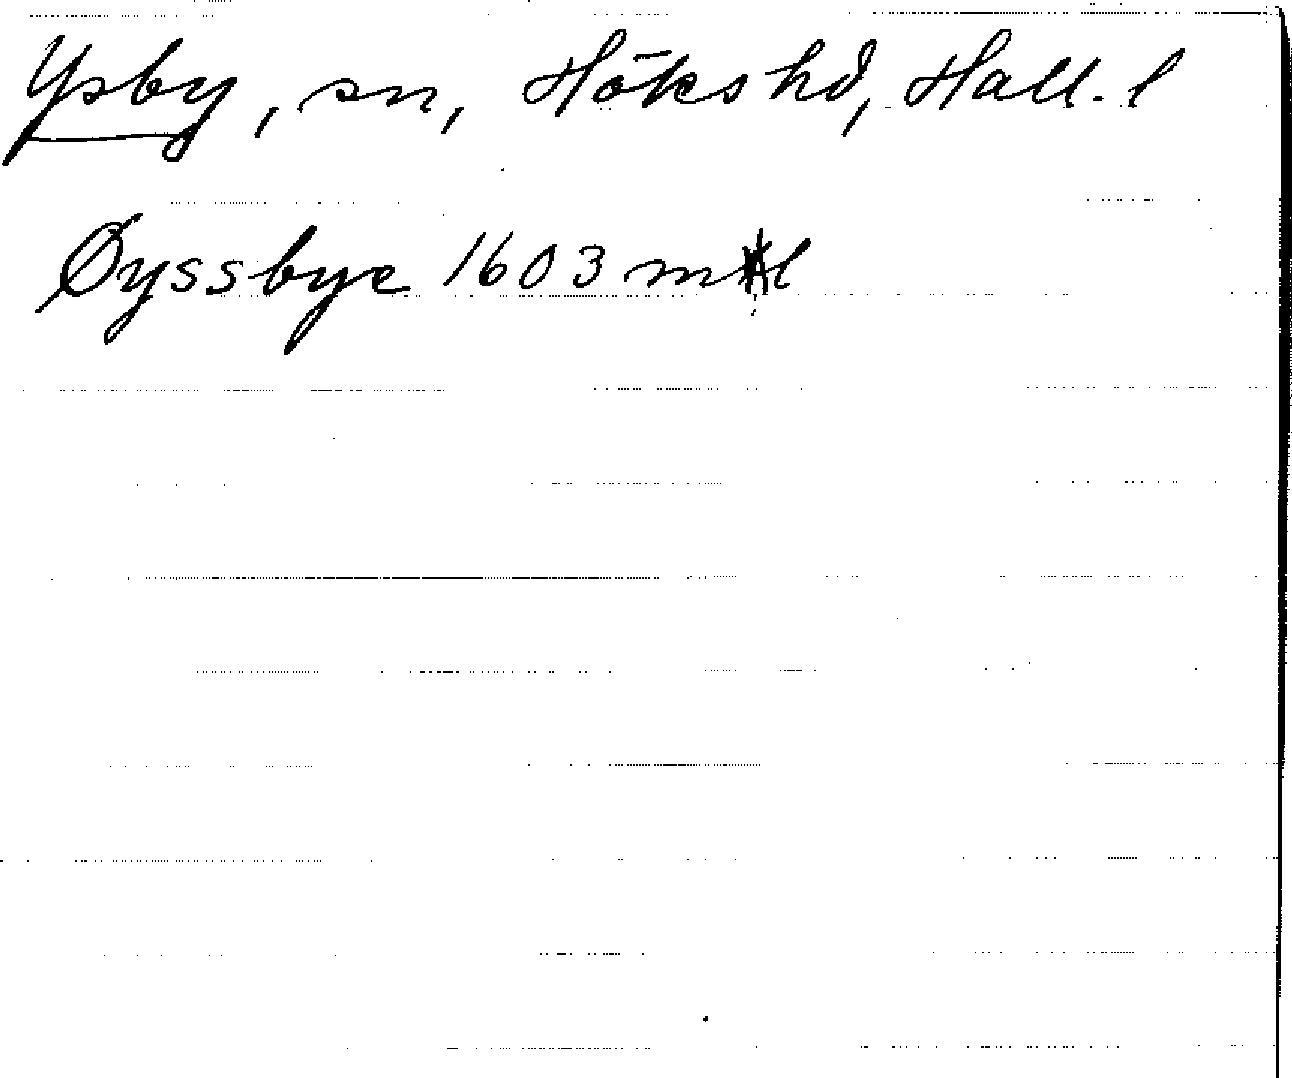 Ysby, sn, Höks hd, Hall. l
Øyssbye 1603 ml